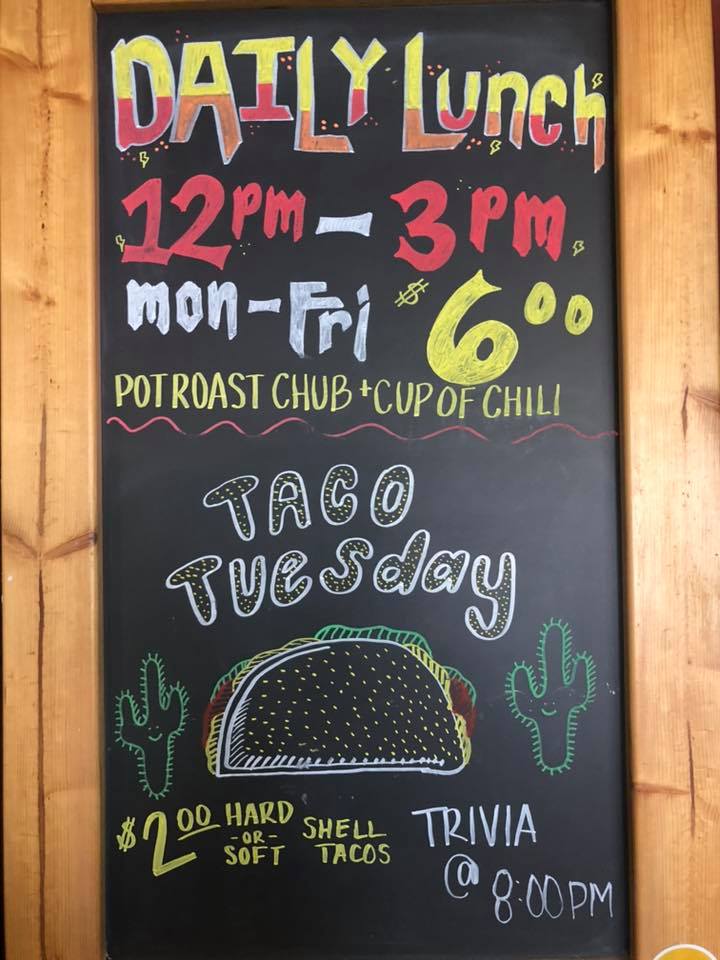 DAILY Lunch
12pm - 3pm
mon-Fri $6.00
POT ROAST CHUB + CUP OF CHILI
TACO
TUesday
$2.00 HARD -OR- SOFT SHELL TACOS
TRIVIA
@ 8:00PM